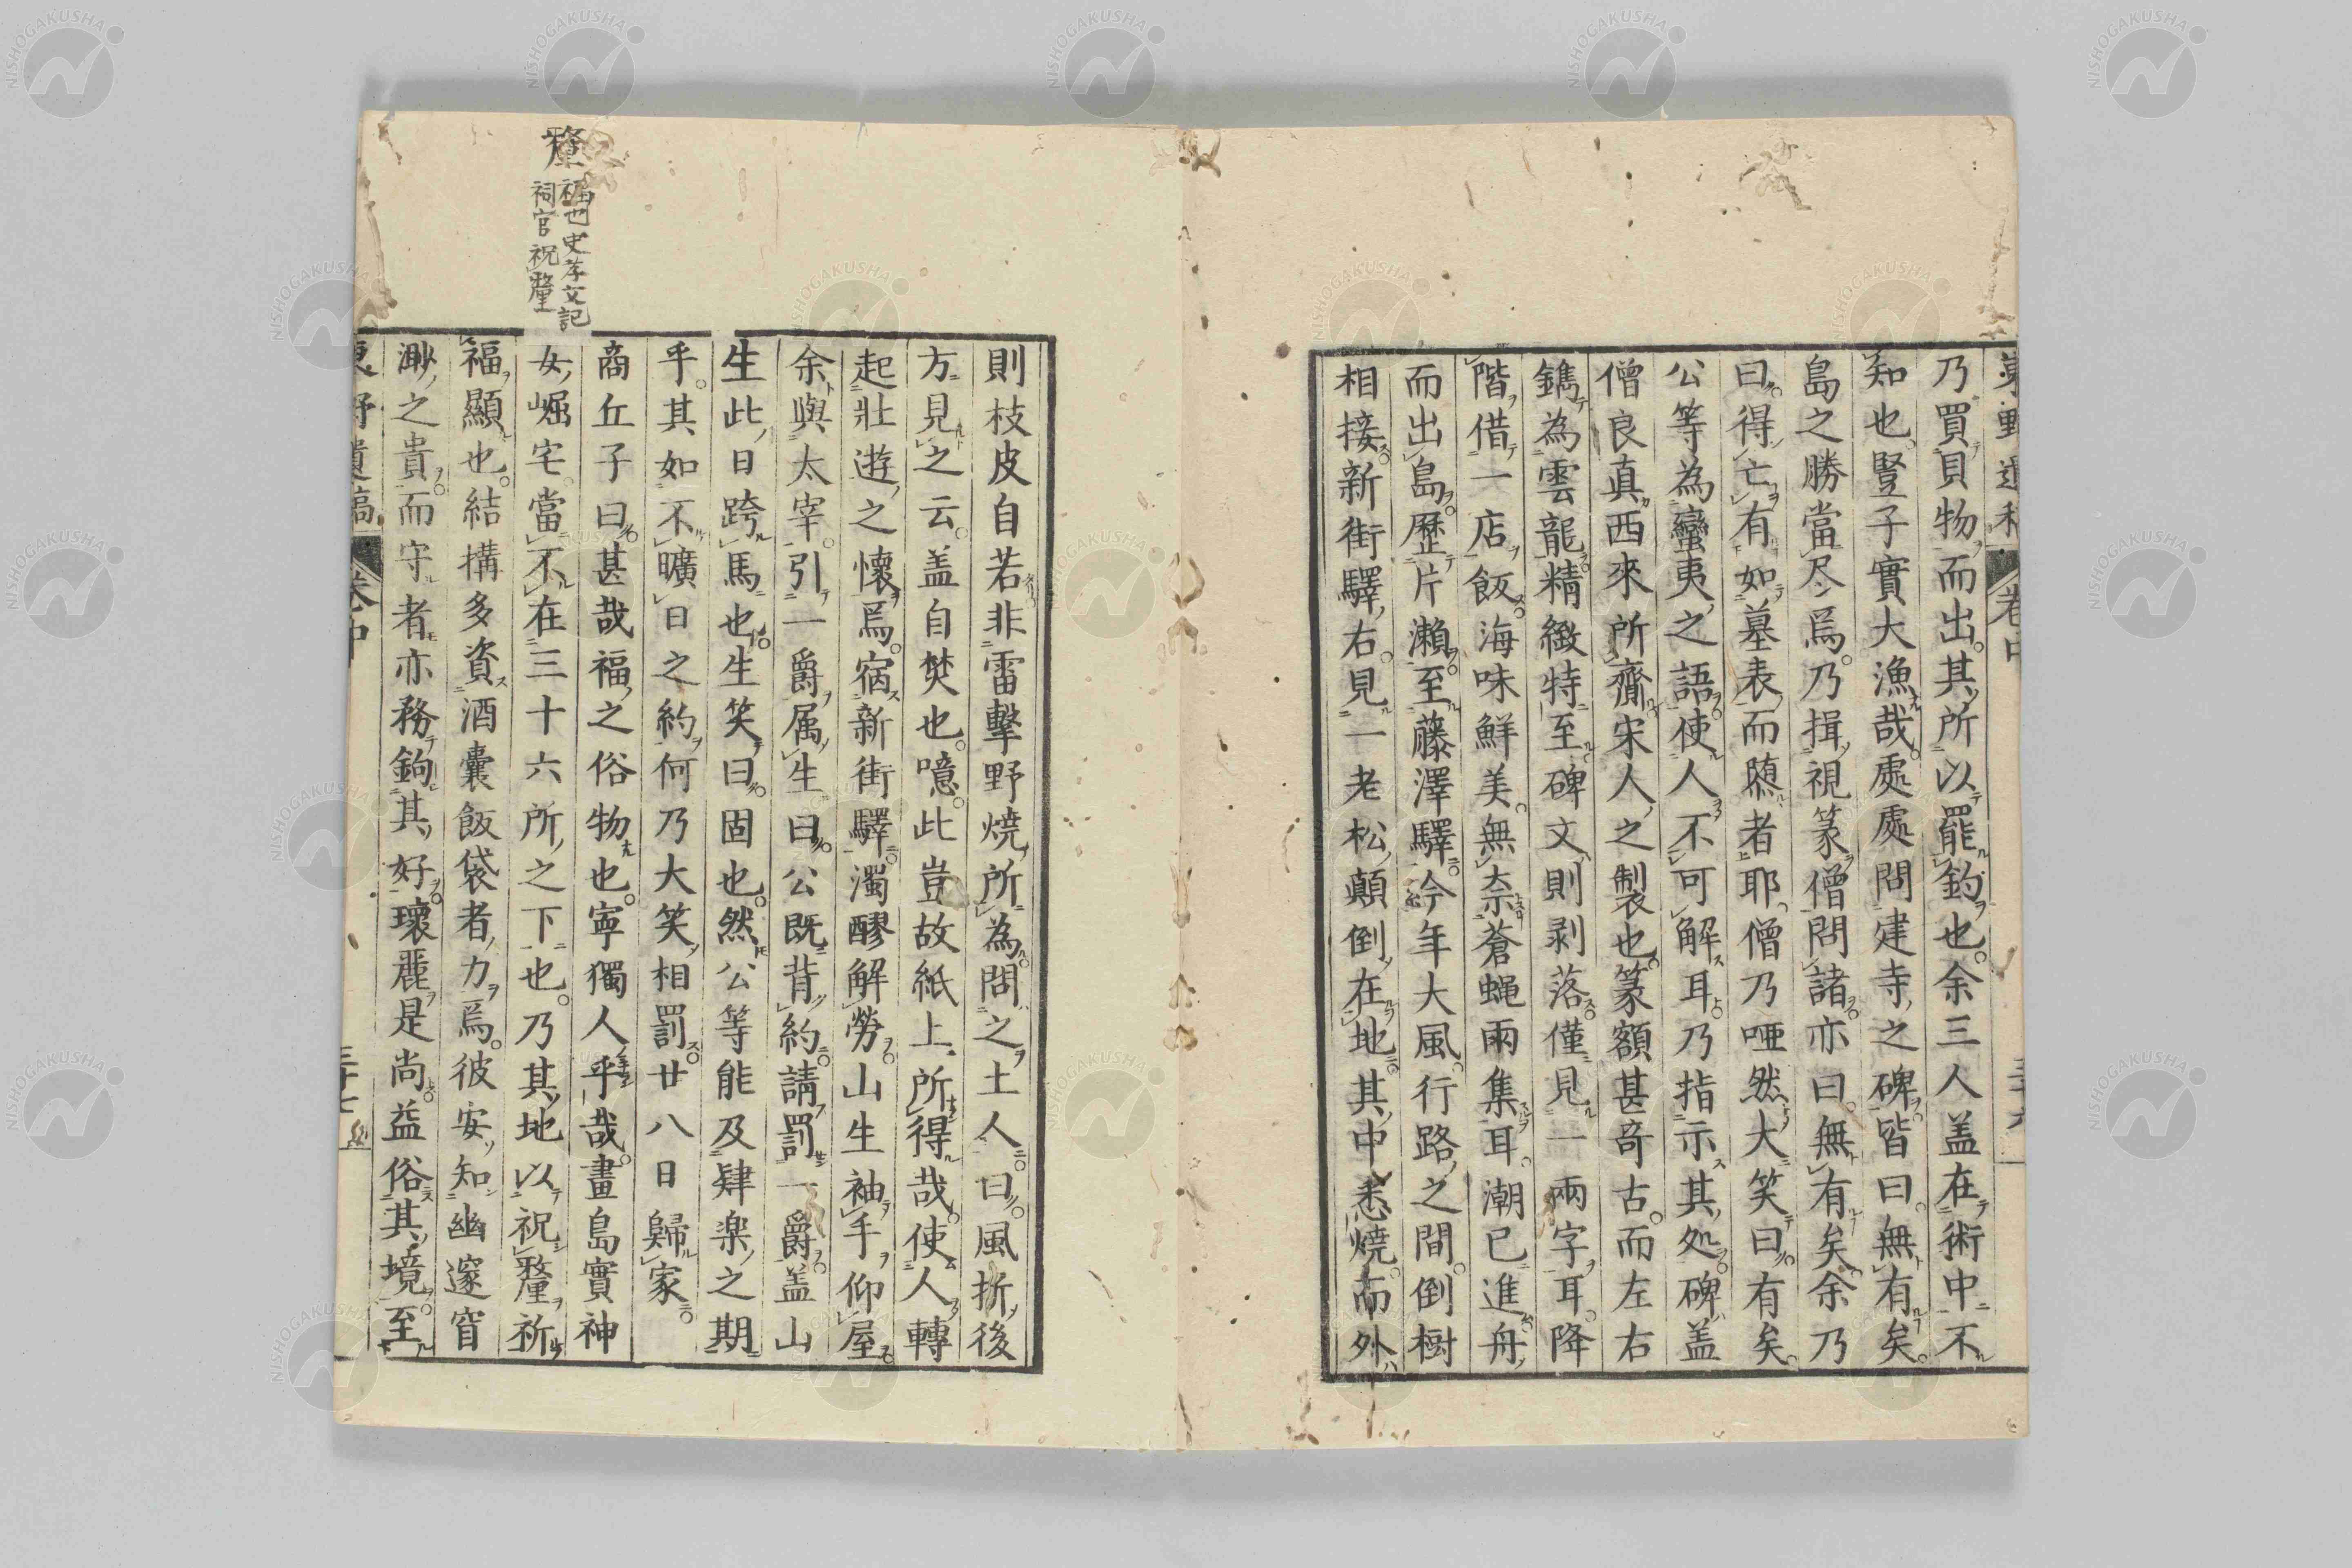 東野遺稿 卷中 三十六
乃買貝物而出其所以罷釣也余三人盖在術中不
知也豎子實大漁哉處處問建寺之碑皆曰無有矣
島之勝當尽焉乃揖視篆僧問諸亦曰無有矣余乃
曰得亡有如墓表而隳者耶僧乃唖然大笑曰有矣
公等為蠻夷之語使人不可解耳乃指示其処碑盖
僧良真西來所齎宋人之製也篆額甚奇古而左右
鐫為雲龍精緻特至碑文則剥落僅見一兩字耳降
階借一店飯海味鮮美無奈蒼蝿雨集耳潮已進舟
而出島歴片瀬至藤澤驛今年大風行路之間倒樹
相接新街驛右見一老松顛倒在地其中悉焼而外
則枝皮自若非雷擊野焼所為問之土人曰風折後
方見之云盖自焚也噫此豈故紙上所得哉使人轉
起壯遊之懷焉宿新街驛濁醪解勞山生袖手仰屋
余與太宰引一爵属生曰公既背約請罰一爵盖山
生此日跨馬也生笑曰固也然公等能及肆楽之期
乎其如不曠日之約何乃大笑相罰廿八日歸家
商丘子曰甚哉福之俗物也寧獨人乎哉畫島實神
女崛宅當不在三十六所之下也乃其地以祝釐祈
福顯也結構多資酒囊飯袋者力焉彼安知幽邃窅
渺之貴而守者亦務鉤其好壞麗是尚益俗其境至
東野遺稿 卷中 三十七
釐 福也史孝文記
祠官祝釐